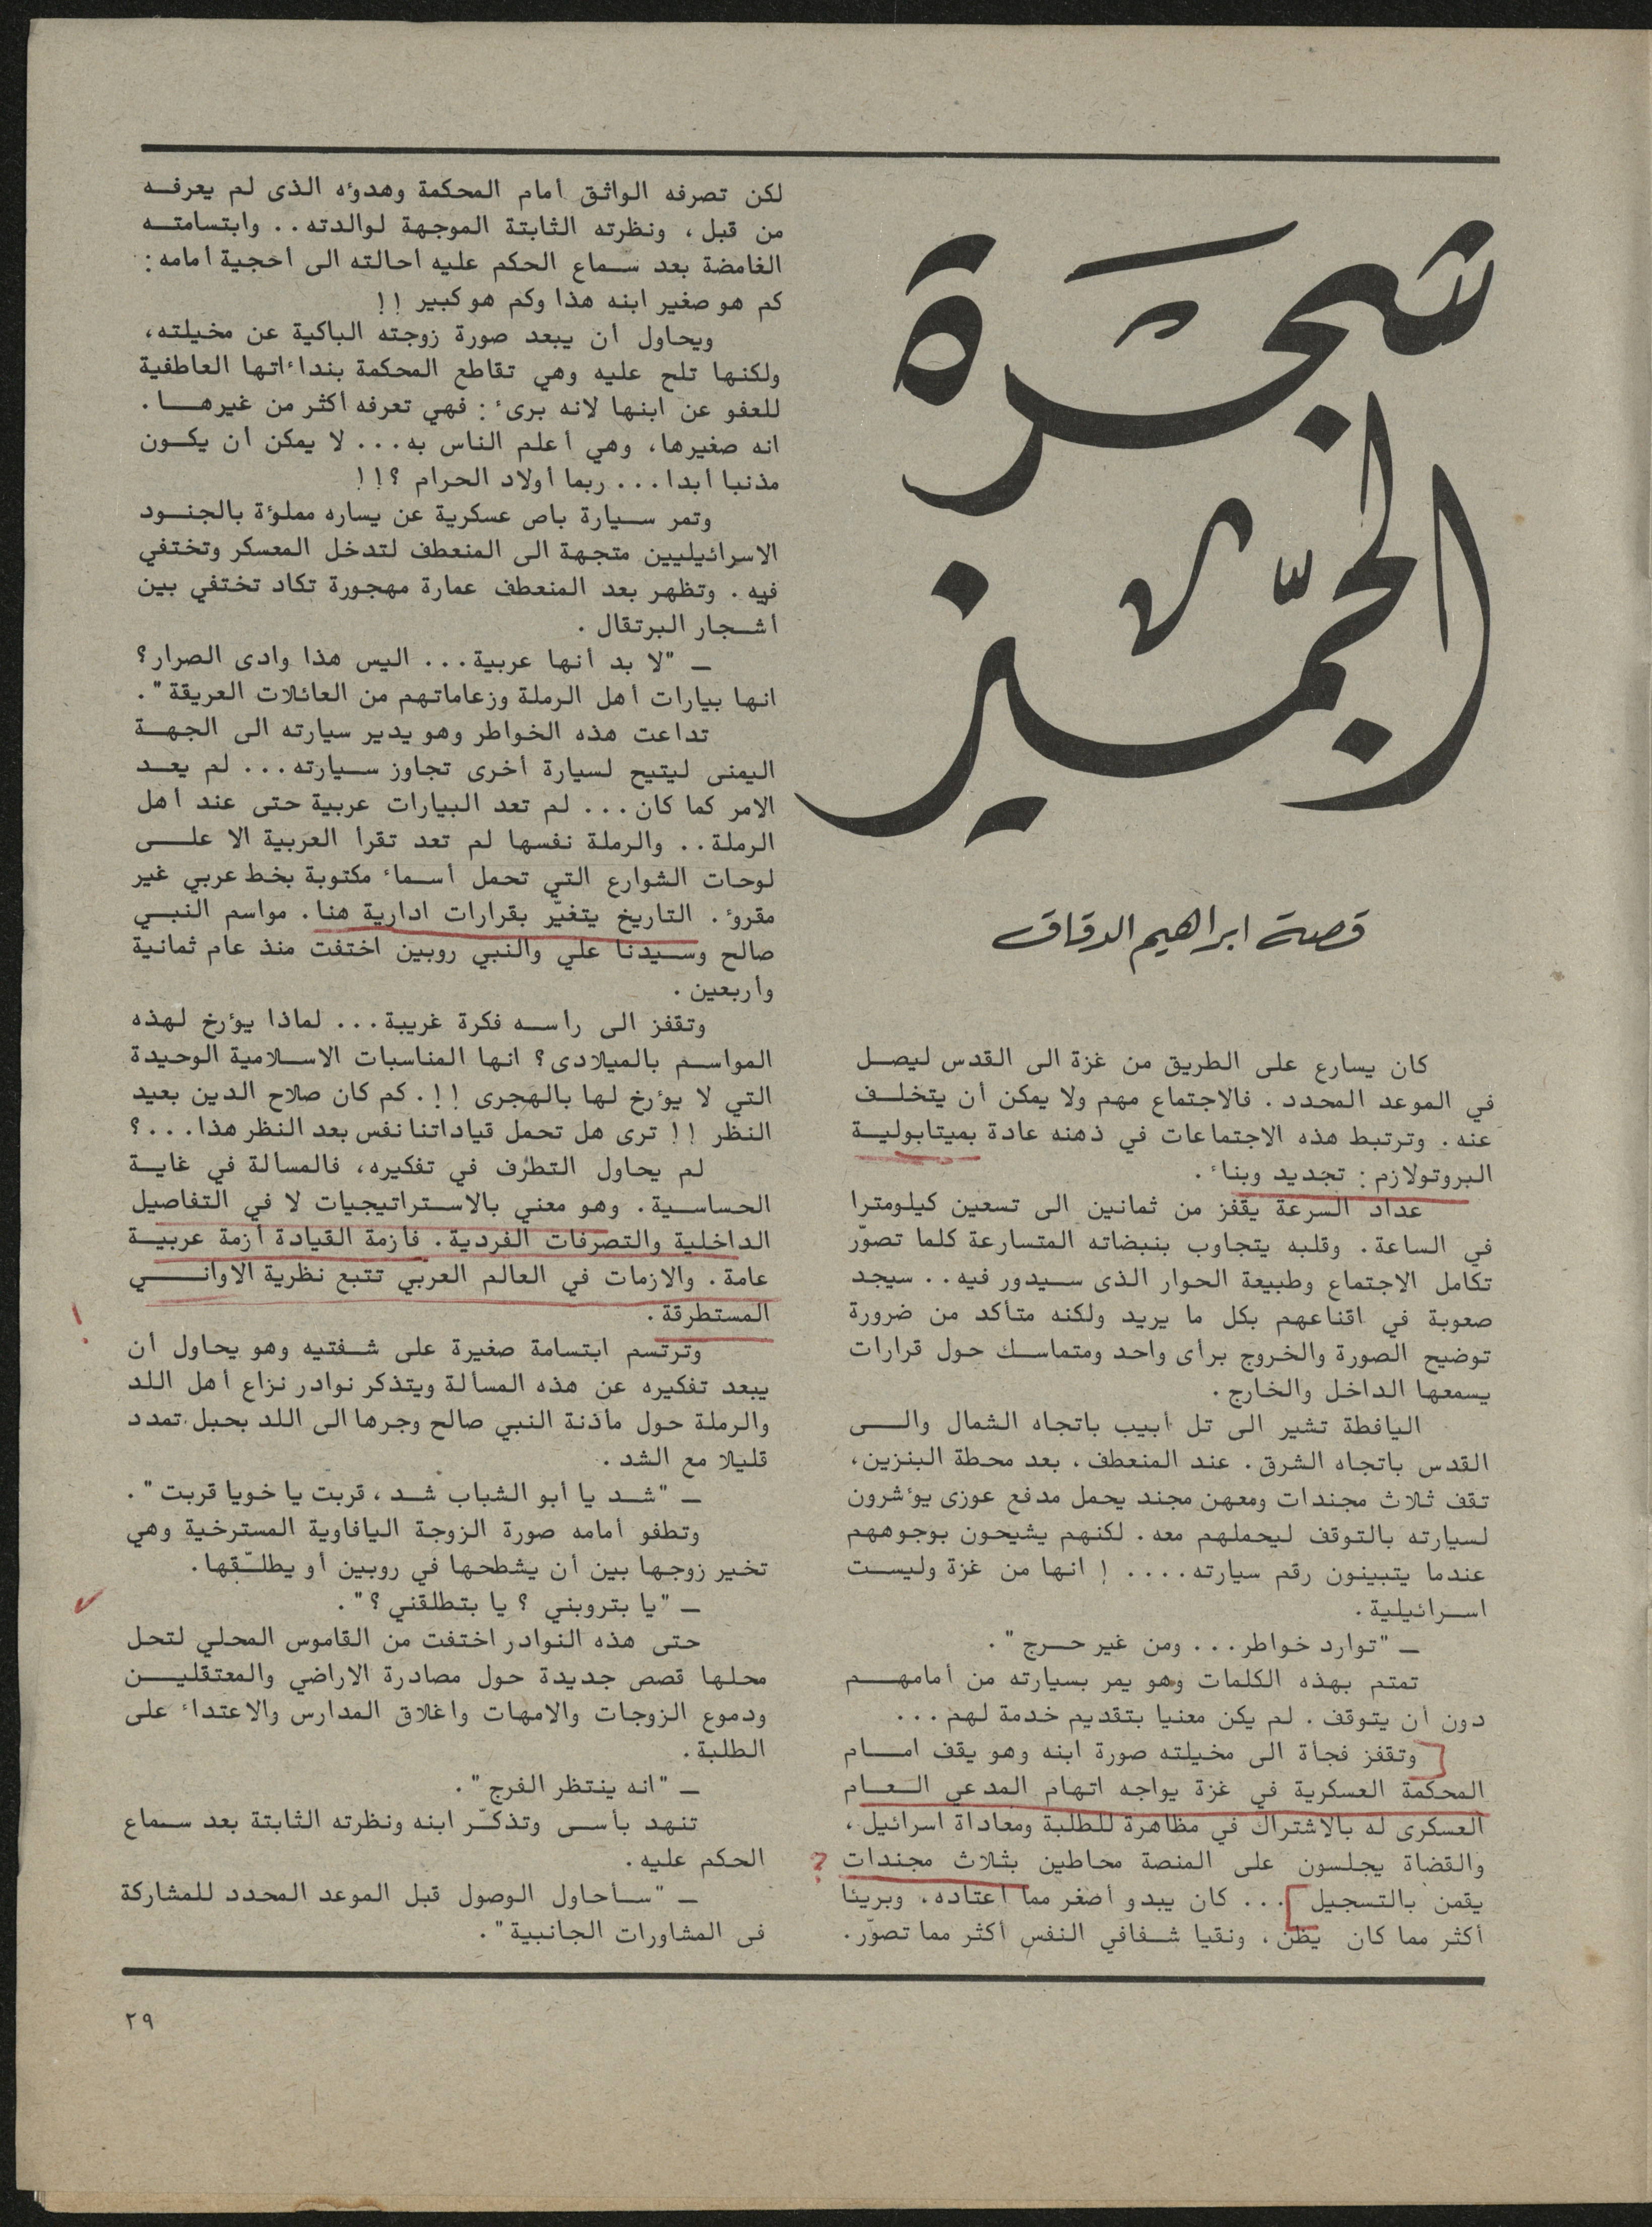 شجرة
الجمّيز
قصة ابراهيم الدقاق
كان يسارع على الطريق من غزة الى القدس ليصل
في الموعد المحدد . فالاجتماع مهم ولا يمكن أن يتخلف
عنه . وترتبط هذه الاجتماعات في ذهنه عادة بميتابولية
البروتولازم : تجديد وبناء .
عداد السرعة يقفز من ثمانين الى تسعين كيلومترا
في الساعة . وقلبه يتجاوب بنبضاته المتسارعة كلما تصوّر
تكامل الاجتماع وطبيعة الحوار الذى سيدور فيه . . سيجد
صعوبة في اقناعهم بكل ما يريد ولكنه متأكد من ضرورة
توضيح الصورة والخروج برأى واحد ومتماسك حول قرارات
يسمعها الداخل والخارج .
اليافطة تشير الى تل أبيب باتجاه الشمال والى
القدس باتجاه الشرق . عند المنعطف ، بعد محطة البنزين ،
تقف ثلاث مجندات ومعهن مجند يحمل مدفع عوزى يؤشرون
لسيارته بالتوقف ليحملهم معه . لكنهم يشيحون بوجوههم
عندما يتبينون رقم سيارته . . . . ! انها من غزة وليست
اسرائيلية .
ـ "توارد خواطر . . . ومن غير حرج" .
تمتم بهذه الكلمات وهو يمر بسيارته من أمامهم
دون أن يتوقف . لم يكن معنيا بتقديم خدمة لهم . . .
وتقفز فجأة الى مخيلته صورة ابنه وهو يقف امام
المحكمة العسكرية في غزة يواجه اتهام المدعي العام
العسكرى له بالاشتراك في مظاهرة للطلبة ومعاداة اسرائيل ،
والقضاة يجلسون على المنصة محاطين بثلاث مجندات ?
يقمن بالتسجيل . . . كان يبدو أصغر مما اعتاده . وبريئا
أكثر مما كان يظن ، ونقيا شفافي النفس أكثر مما تصوّر .
لكن تصرفه الواثق أمام المحكمة وهدوءه الذى لم يعرفه
من قبل ، ونظرته الثابتة الموجهة لوالدته . . وابتسامته
الغامضة بعد سماع الحكم عليه أحالته الى أحجية أمامه :
كم هو صغير ابنه هذا وكم هو كبير ! !
ويحاول أن يبعد صورة زوجته الباكية عن مخيلته ،
ولكنها تلح عليه وهي تقاطع المحكمة بنداءاتها العاطفية
للعفو عن ابنها لانه برىء : فهي تعرفه أكثر من غيرها .
انه صغيرها ، وهي أعلم الناس به . . . لا يمكن أن يكون
مذنبا أبدا . . . ربما أولاد الحرام ؟ ! !
وتمر سيارة باص عسكرية عن يساره مملوءة بالجنود
الاسرائيليين متجهة الى المنعطف لتدخل المعسكر وتختفي
فيه . وتظهر بعد المنعطف عمارة مهجورة تكاد تختفي بين
أشجار البرتقال .
ـ "لا بد أنها عربية . . . اليس هذا وادى الصرار ؟
انها بيارات أهل الرملة وزعاماتهم من العائلات العريقة" .
تداعت هذه الخواطر وهو يدير سيارته الى الجهة
اليمنى ليتيح لسيارة أخرى تجاوز سيارته . . . لم يعد
الامر كما كان . . . لم تعد البيارات عربية حتى عند أهل
الرملة . . والرملة نفسها لم تعد تقرأ العربية الا على
لوحات الشوارع التي تحمل أسماء مكتوبة بخط عربي غير
مقروء . التاريخ يتغيّر بقرارات ادارية هنا . مواسم النبي
صالح وسيدنا علي والنبي روبين اختفت منذ عام ثمانية
وأربعين .
وتقفز الى رأسه فكرة غريبة . . . لماذا يؤرخ لهذه
المواسم بالميلادى ؟ انها المناسبات الاسلامية الوحيدة
التي لا يؤرخ لها بالهجرى ! ! . كم كان صلاح الدين بعيد
النظر ! ! ترى هل تحمل قياداتنا نفس بعد النظر هذا . . . ؟
لم يحاول التطرّف في تفكيره ، فالمسالة في غاية
الحساسية . وهو معني بالاستراتيجيات لا في التفاصيل
الداخلية والتصرفات الفردية . فأزمة القيادة أزمة عربية
عامة . والازمات في العالم العربي تتبع نظرية الاواني
المستطرقة .
!
وترتسم ابتسامة صغيرة على شفتيه وهو يحاول أن
يبعد تفكيره عن هذه المسألة ويتذكر نوادر نزاع أهل اللد
والرملة حول مأذنة النبي صالح وجرها الى اللد بحبل تمدد
قليلا مع الشد .
ـ "شد يا أبو الشباب شد ، قربت يا خويا قربت" .
وتطفو أمامه صورة الزوجة اليافاوية المسترخية وهي
تخير زوجها بين أن يشطحها في روبين أو يطلّقها .
ـ "يا بتروبني ؟ يا بتطلقني ؟" .
حتى هذه النوادر اختفت من القاموس المحلي لتحل
محلها قصص جديدة حول مصادرة الاراضي والمعتقلين
ودموع الزوجات والامهات واغلاق المدارس والاعتداء على
الطلبة .
ـ "انه ينتظر الفرج" .
تنهد بأسى وتذكّر ابنه ونظرته الثابتة بعد سماع
الحكم عليه .
ـ "سأحاول الوصول قبل الموعد المحدد للمشاركة
فى المشاورات الجانبية" .
٢٩